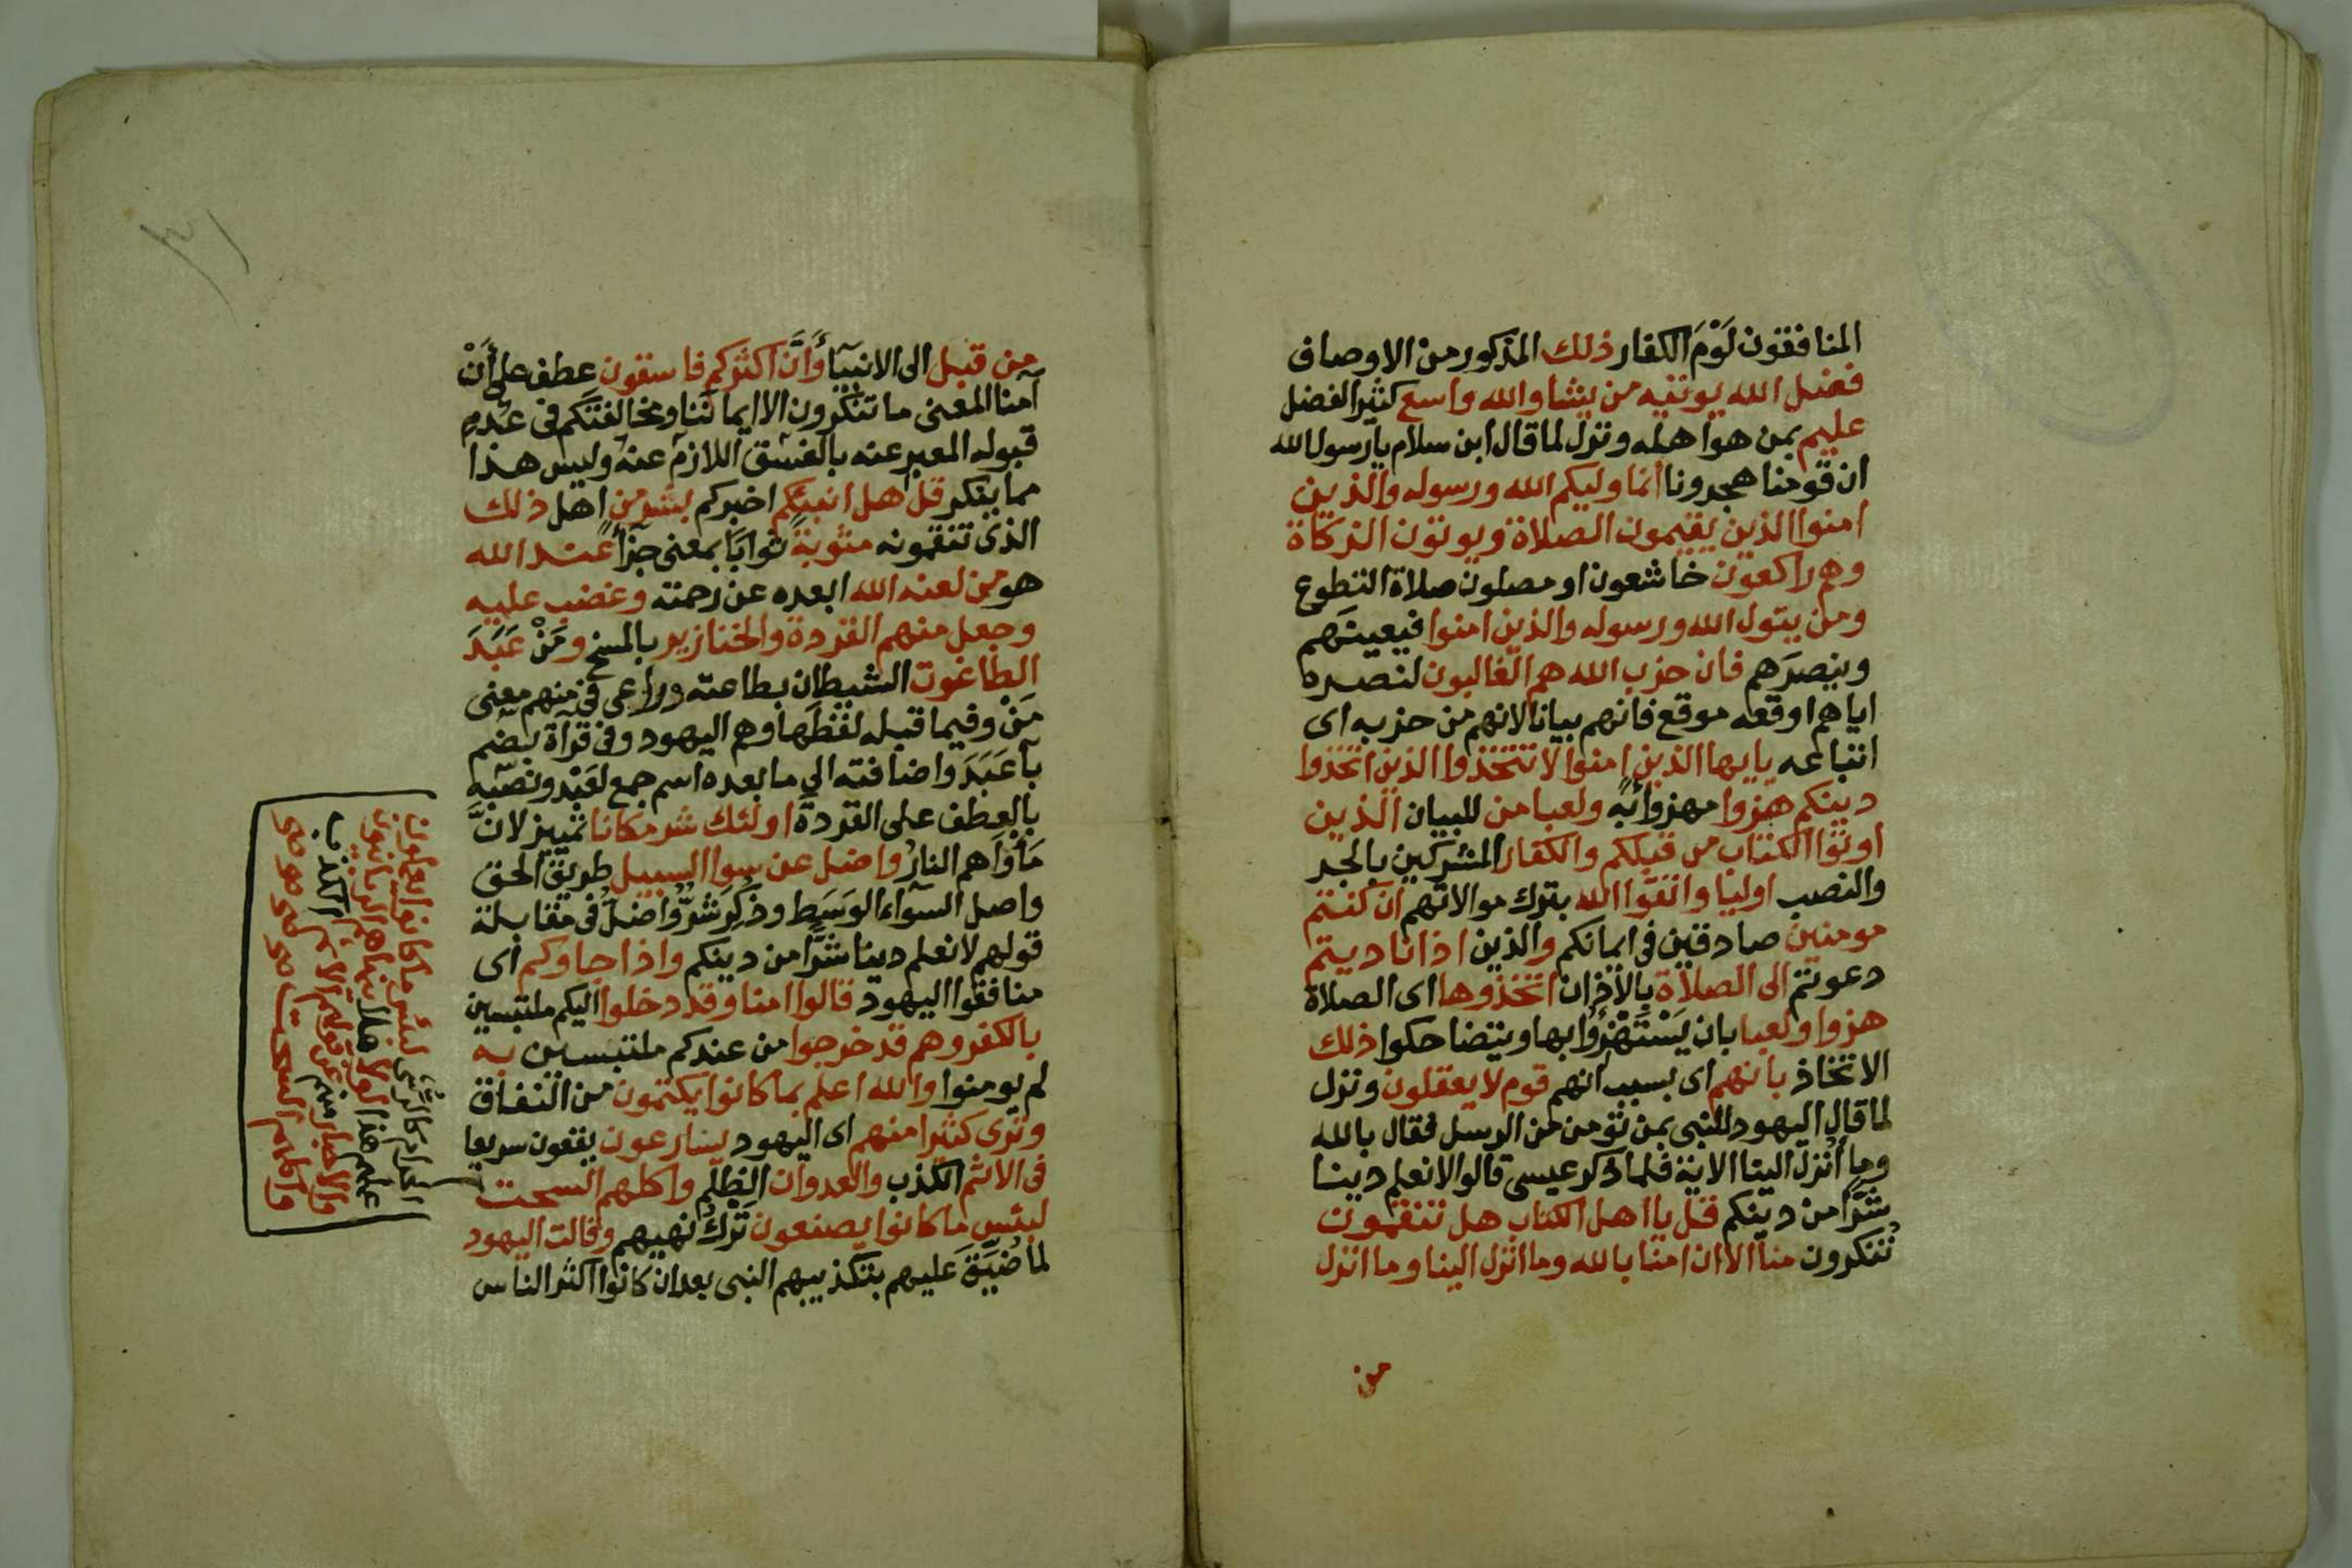 المنافقون لَوْمَ الكفار ذلك المذكور من الاوصاف
فضل الله يوتيه من يشا والله واسع كثير الفضل
عليم بمن هوا هله ونزل لما قال ابن سلام يا رسول الله
ان قومنا هجرونا انما وليكم الله ورسوله والذين
امنوا الذين يقيمون الصلاة ويوتون الزكاة
وهم راكعون خاشعون او مصلون صلاة التطوع
ومن يتول الله ورسوله والذين امنوا فيعينهم
وينصرهم فان حزب الله هم الغالبون لنصره
اياهم اوقعه موقع فانهم بيانا لانهم من حزبه اى
اتباعه يايها الذين امنوا لا تتخذوا الذين اتخذوا
دينكم هزوا مهزوأ به ولعبا من للبيان الذين
اوتوا الكتاب من قبلكم والكفار المشركين بالجر
والنصب اوليا واتقوا الله بترك موالاتهم ان كنتم
مومنين صادقين فى ايمانكم والذين اذا ناديتم
دعوتم الى الصلاة بالأذان اتخذوها اى الصلاة
هزوا ولعبا بان يَسْتَهْزِؤُا بها ويتضاحكوا ذلك
الاتخاذ بانهم اى بسبب انهم قوم لا يعقلون ونزل
لما قال اليهود للنبى بمن تؤمن من الرسل فقال بالله
وما أُنزل الينا الاية فلما ذكر عيسى قالوا لا نعلم دينا
شرًا من دينكم قل يا اهل الكتاب هل تنقمون
تُنكرون منا الا ان امنا بالله وما انزل الينا وما انزل
من
من قبل الى الانبيآ وَأَنَّ اكثركم فاسقون عطف على أَنْ
آمنا المعنى ما تنكرون الا ايماننا ومخالفتكم فى عدم
قبوله المعبر عنه بالفسق اللازم عنه وليس هذا
مما ينكر قل هل انبئكم اخبركم بشر من اهل ذلك
الذى تنقمونه مثوبةً ثوابًا بمعنى جزآً عند الله
هو من لعنه الله ابعده عن رحمته وغضب عليه
وجعل منهم القردة والخنازير بالمسخ ومَنْ عَبَدَ
الطاغوت الشيطان بطاعته وراعى فى منهم معنى
مَنْ وفيما قبله لفظها وهم اليهود وفى قرآة بضم
بآ عَبَدَ واضافته الى ما بعده اسم جمع لعَبْد ونصبه
بالعطف على القردة اولئك شر مكانا تمييز لانّ
مَأْوَاهم النار واضل عن سوا السبيل طريق الحق
واصل السوآء الوَسَط وذِكْرَ شرٌّ واضلُ فى مقابلة
قولهم لا نعلم دينا شرًّا من دينكم واذا جاوكم اى
منافقوا اليهود قالوا امنا وقد دخلوا اليكم ملتبسين
بالكفر وهم قد خرجوا من عندكم ملتبسين به
لم يومنوا والله اعلم بما كانوا يكتمون من النفاق
وترى كثيرا منهم اى اليهود يسارعون يقعون سريعا
فى الاثم الكذب والعدوان الظلم واكلهم السحت
لبئس ما كانوا يصنعون تَرْكُ نهيهم وقالت اليهود
لما ضُيِّقَ عليهم بتكذيبهم النبى بعد ان كانوا اكثر الناس
الحرام كالرشى لبئس ما كانوا يعملون
عملهم هذا لولا هلا ينهاهم الربانيون
والاحبار منهم عن قولهم الاثم الكذب
واكلهم السحت